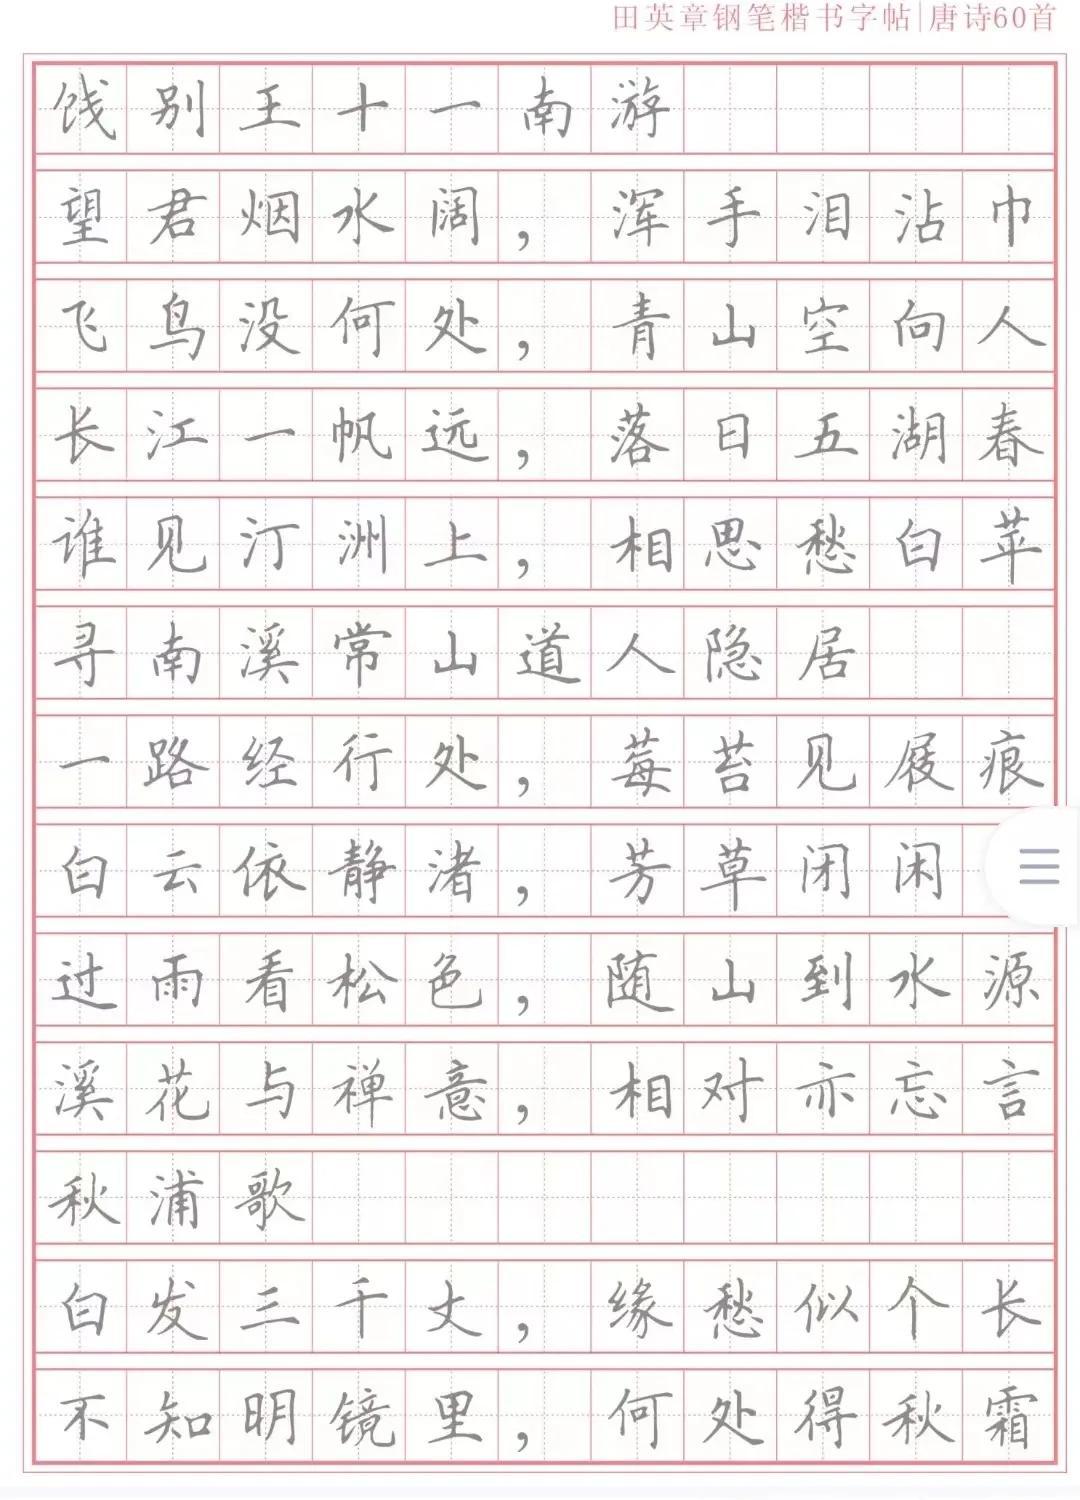 田英章钢笔楷书字帖|唐诗60首
饯别王十一南游
望君烟水阔，浑手泪沾巾
飞鸟没何处，青山空向人
长江一帆远，落日五湖春
谁见汀洲上，相思愁白苹
寻南溪常山道人隐居
一路经行处，莓苔见屐痕
白云依静渚，芳草闭闲
过雨看松色，随山到水源
溪花与禅意，相对亦忘言
秋浦歌
白发三千丈，缘愁似个长
不知明镜里，何处得秋霜